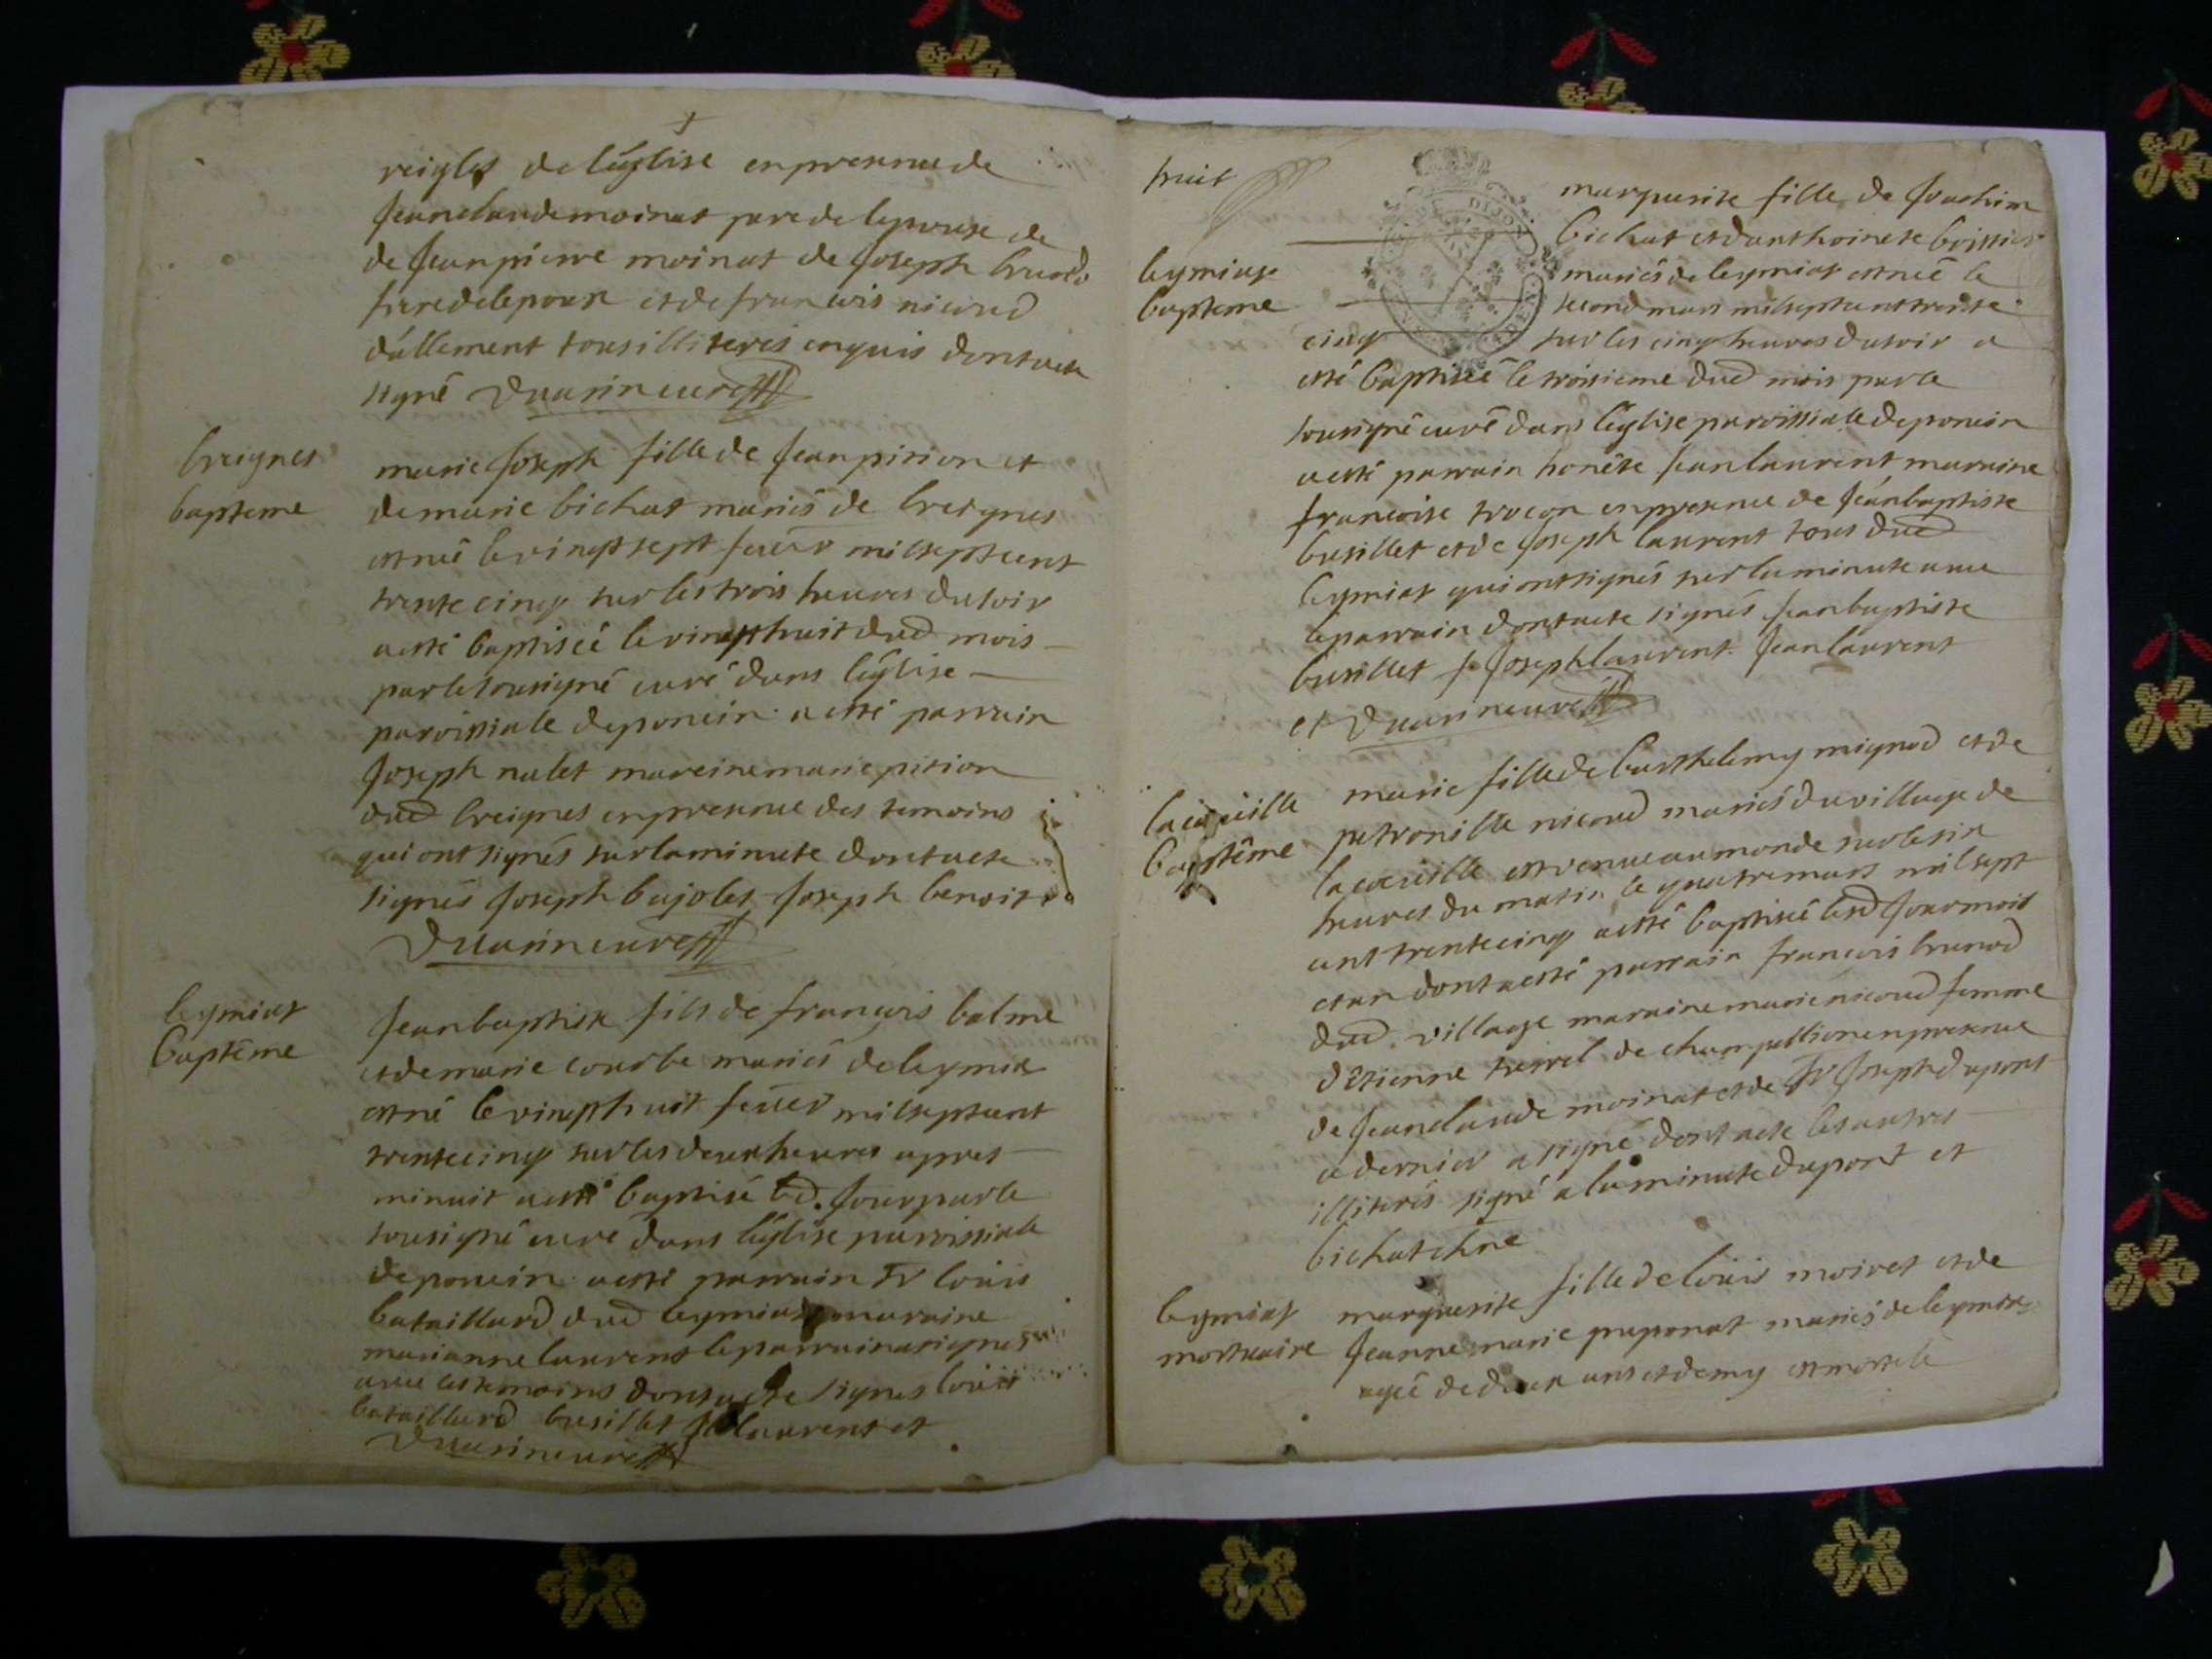 reigles de léglise en presence de
Jean claude moinat pere de lepouse de
de Jean pierre moinat de Joseph brunod
frere de lepoux et de francois nicoud
dállement tous illiterés enquis dont acte
signé Duarin curé
breignes
bapteme
marie Joseph fille de Jean pition et
de marie bichat mariés de breignes
est née le vingt sept feuer mil sept cent
trente cinq sur les trois heures du soir
a esté baptiseé le vingt huit dud mois
par le sousigné curé dans léglise
paroissiale de poncin a esté parrain
Joseph nalet mareine marie pition
dud breignes en presence des temoins
qui ont signés sur la minute dont acte
signés Joseph bajolet Joseph benoit
Duarin curé
leymiat
baptême
Jean baptiste fils de françois balme
et de marie courbe mariés de leymia
est né le vingt huit feuer mil sept cent
trente cinq sur les deux heures apres
minuit a esté baptisé led. Jour par le
sousigné curé dans léglise paroissiale
de poncin a esté parrain Sr loüis
bataillard dud leymiat maraine
marianne laurent le parrain a signés
avec les temoins dont acte signés loüis
bataillard busillet J laurent et
Duarin curé
huit
DE DIJON
leymiat
bapteme
marguerite fille de Joachim
bichat et danthoinete boissier
mariés de leymiat est neé le
second mars mil sept cent trente
cinq sur les cinq heures du soir a
esté baptiseé le troisieme dud mois par le
sousigné curé dans léglise paroissialle de poncin
a esté parrain honéte Jean laurent maraine
francoise trocon en presence de Jéan baptiste
busillet et de Joseph laurent tous dud
leymiat qui ont signés sur la minute avec
le parrain dont acte signés Jean baptiste
busillet J Joseph laurent Jean laurent
et Duarin curé
la cueille
baptême
marie fille de barthelemy mignod et de
petronille nicoud mariés du village de
la cueille est venue au monde sur le six
heures du matin le quatre mars mil sept
cent trente cinq a esté baptiseé lesd Jour mois
et an dont a esté parrain francois brunod
dud. village maraine marie nicoud femme
détienne terrel de champollion en presence
de Jean claude moinat et de Sr Joseph dupont
ce dernier a signé dont acte les autres
illiterés signé a la minute dupont et
bichat
leymiat
mortuaire
marguerite fille de loüis moiret et de
Jeanne marie puponat mariés de leymia
agée de deux ans et demy est morte le